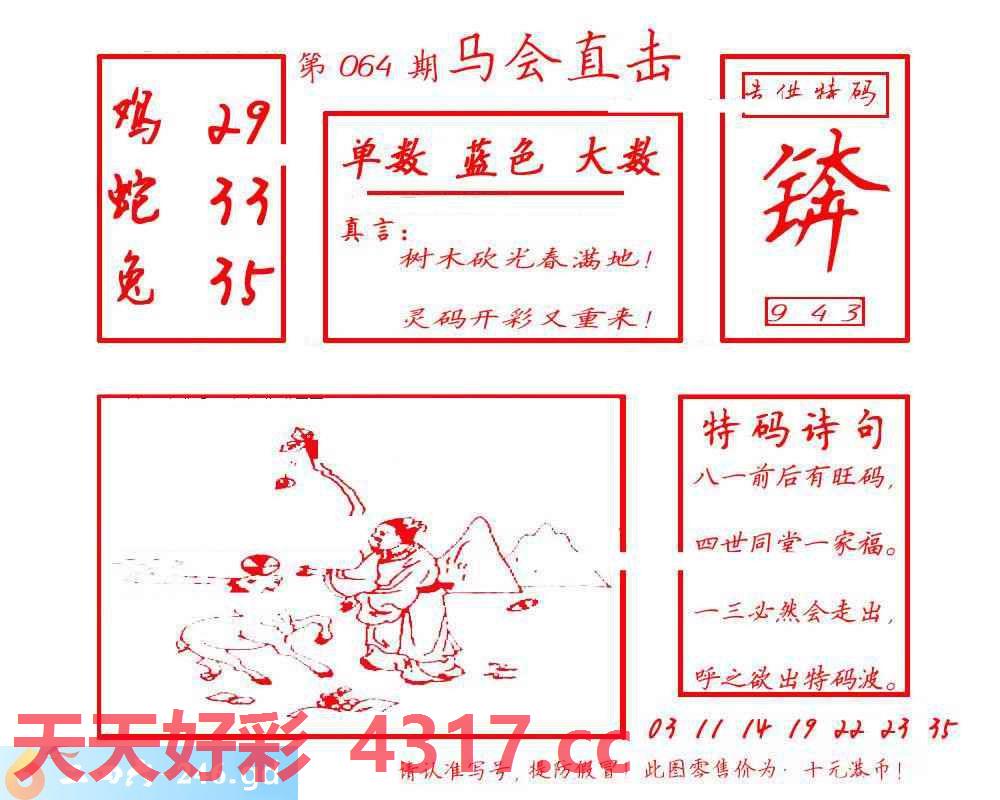 第 064 期 马会直击
鸡 29
蛇 33
兔 35
单数 蓝色 大数
真言：
树木砍光春满地！
灵码开彩又重来！
供特码
9 4 3
特码诗句
八一前后有旺码，
四世同堂一家福。
一三必然会走出，
呼之欲出特码波。
03 11 14 19 22 23 35
天天好彩 4317.cc
246.gd
请认准写号，提防假冒！此图零售价为：十元港币！